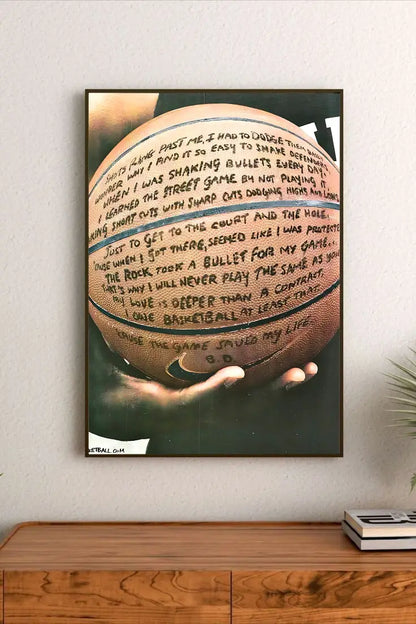 SHOTS FLYING PAST ME, I HAD TO DODGE THEM
WHY I FIND IT SO EASY TO SHAKE DEFENDERS
WHEN I WAS SHAKING BULLETS EVERY DAY.
I LEARNED THE STREET GAME BY NOT PLAYING IT.
KING SHORT CUTS WITH SHARP CUTS DODGING HIGHS AND LOWS
JUST TO GET TO THE COURT AND THE HOLE.
'CAUSE WHEN I GOT THERE, SEEMED LIKE I WAS PROTECTE
THE ROCK TOOK A BULLET FOR MY GAME...
THAT'S WHY I WILL NEVER PLAY THE SAME AS YOU
MY LOVE IS DEEPER THAN A CONTRACT.
I ONE BASKETBALL AT LEAST THAT.
'CAUSE THE GAME SAVED MY LIFE.
B.D.
KETBALL.COM